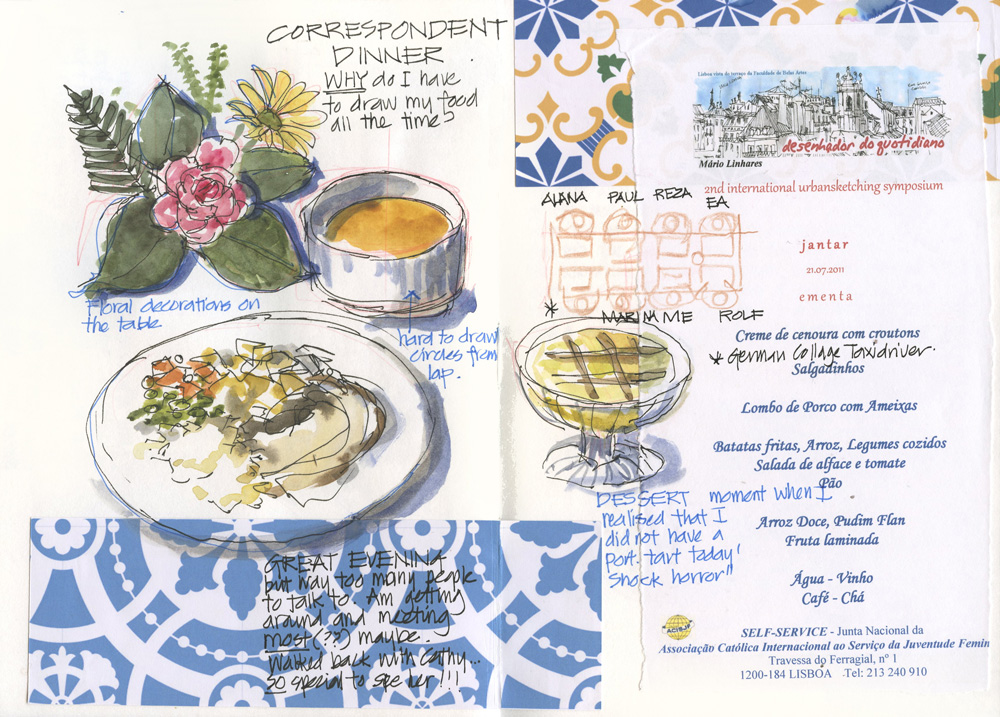 CORRESPONDENT
DINNER.
WHY do I have
to draw my food
all the time?
Floral decorations on
the table
hard to draw
circles from
lap.
GREAT EVENING
but way too many people
to talk to. Am getting
around and meeting
most (??) maybe.
Walked back with Cathy...
so special to see her!!!
Lisboa vista do terraço da Faculdade de Belas Artes
desenhador do quotidiano
Mário Linhares
2nd international urbansketching symposium
ALANA PAUL REZA EA
jantar
21.07.2011
ementa
* MARINA ME ROLF
Creme de cenoura com croutons
* German Collage Taxidriver.
Salgadinhos
Lombo de Porco com Ameixas
Batatas fritas, Arroz, Legumes cozidos
Salada de alface e tomate
Pão
DESSERT moment when I
realised that I
did not have a
Port. tart today!
Shock horror"
Arroz Doce, Pudim Flan
Fruta laminada
Água - Vinho
Café - Chá
ACISJF
SELF-SERVICE - Junta Nacional da
Associação Católica Internacional ao Serviço da Juventude Femin
Travessa do Ferragial, nº 1
1200-184 LISBOA Tel: 213 240 910